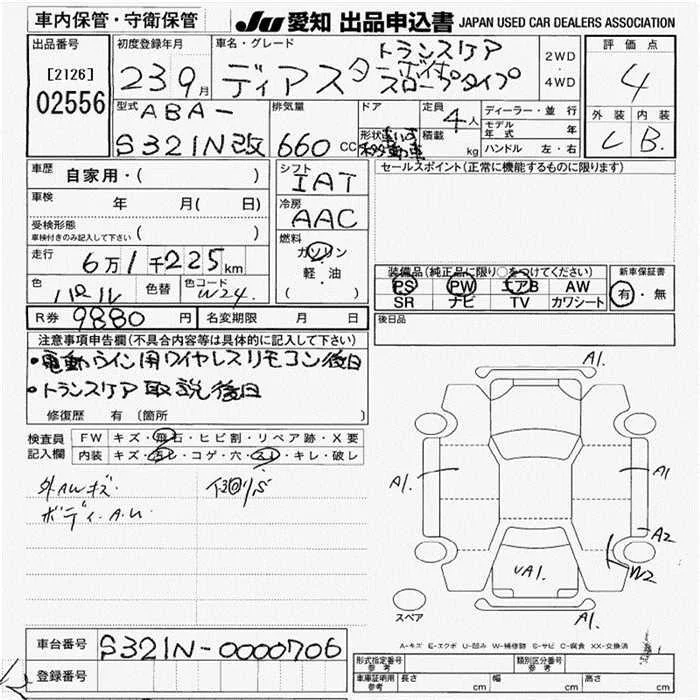 車内保管・守衛保管
JU 愛知 出品申込書 JAPAN USED CAR DEALERS ASSOCIATION
出品番号
[2126]
02556
初度登録年月
23 9月
車名・グレード
トランスケア
ディアス ターボ付
スロープタイプ
2WD
4WD
評価点
4
外装 内装
C B.
型式
ABA-
S321N改
排気量
660 CC
ドア
形状
定員
4人
積載 kg
ディーラー・並行
モデル年式 年
ハンドル 左・右
車歴 自家用・( )
車検 年 月( 日)
受検形態
車検付きのみ記入して下さい ( )
走行 6万1千225km
色 パール 色替
色コード W24.
シフト
IAT
冷房
AAC
燃料
ガソリン
軽・油
( )
セールスポイント(正常に機能するものに限ります)
装備品(純正品に限り○をつけてください)
PS PW エアB AW
SR ナビ TV カワシート
新車保証書
有・無
R券 9880円 名変期限 月 日
後日品
注意事項申告欄(不具合内容等は具体的に記入して下さい)
・電動ウインチ用ワイヤレスリモコン後日
・トランスケア取説後日
修復歴 有 〔箇所
検査員記入欄
FW キズ・飛石・ヒビ割・リペア跡・X要
内装 キズ・汚レ・コゲ・穴・スレ・キレ・破レ
外AWキズ.
ボディ.A.U
A1.
A1.
A1
A2
W2
UA1.
A1.
スペア
A-キズ E-エクボ U-凹み W-補修跡 S-サビ C-腐食 XX-交換済
車台番号 S321N-0000706
登録番号
形式指定番号 参考
類別区分番号 参考
車庫証明用 参考 長さ cm 幅 cm 高さ cm